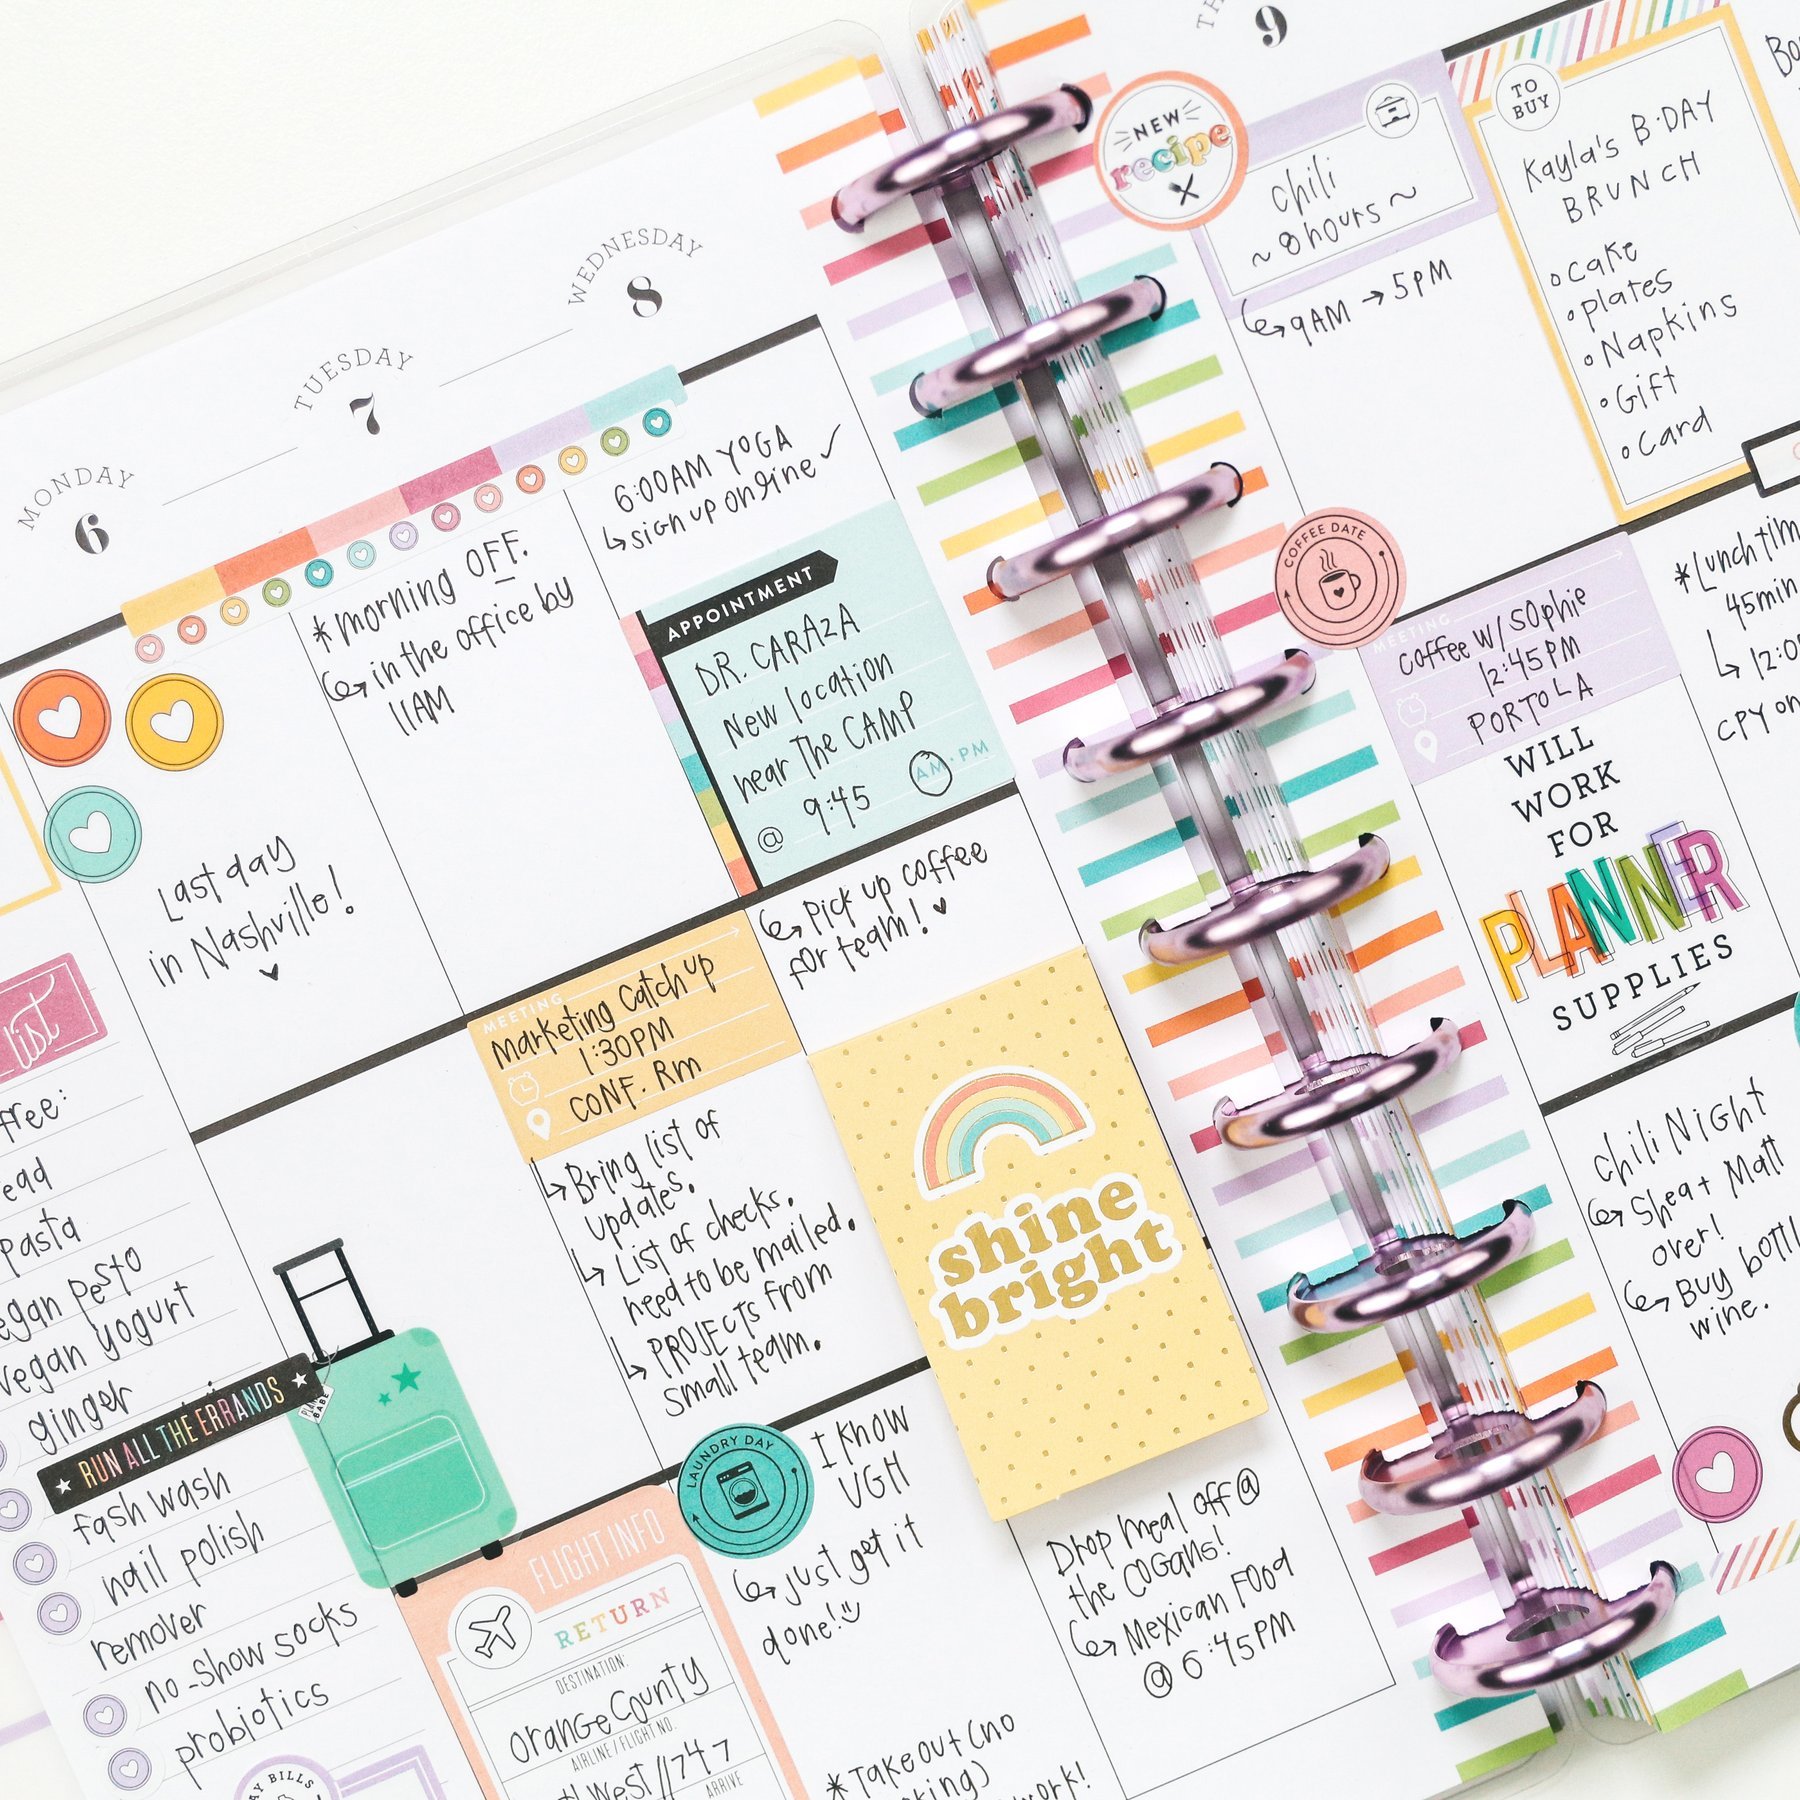 MONDAY
6
Last day
in Nashville!
list
free:
pasta
pesto
vegan yogurt
ginger
RUN ALL THE ERRANDS
fash wash
nail polish
remover
no-show socks
probiotics
BILLS
TUESDAY
7
*morning OFF.
in the office by
11AM
MEETING
Marketing Catch up
1:30PM
CONF. Rm
Bring list of
updates.
List of checks.
need to be mailed.
PROJECTS from
small team.
FLIGHT INFO
RETURN
DESTINATION:
Orange County
AIRLINE/FLIGHT NO.
West//747
ARRIVE
WEDNESDAY
8
6:00AM YOGA
sign up online
APPOINTMENT
DR. CARAZA
New location
near the CAMP
@ 9:45 AM · PM
Pick up coffee
for team!
shine
bright
LAUNDRY DAY
I KNOW
UGH
just get it
done!
*Take out (no
work!
Drop meal off @
the COGANS!
Mexican Food
@ 6:45PM
9
NEW
recipe
chili
~ 8 hours ~
9AM → 5PM
COFFEE DATE
MEETING
Coffee w/ Sophie
12:45PM
PORTOLA
WILL
WORK
FOR
PLANNER
SUPPLIES
TO
BUY
Kayla's B·DAY
BRUNCH
cake
plates
Napkins
Gift
Card
*Lunch
45min
CPY on
Chili NIGHT
Shea + Matt
over!
Buy
wine.